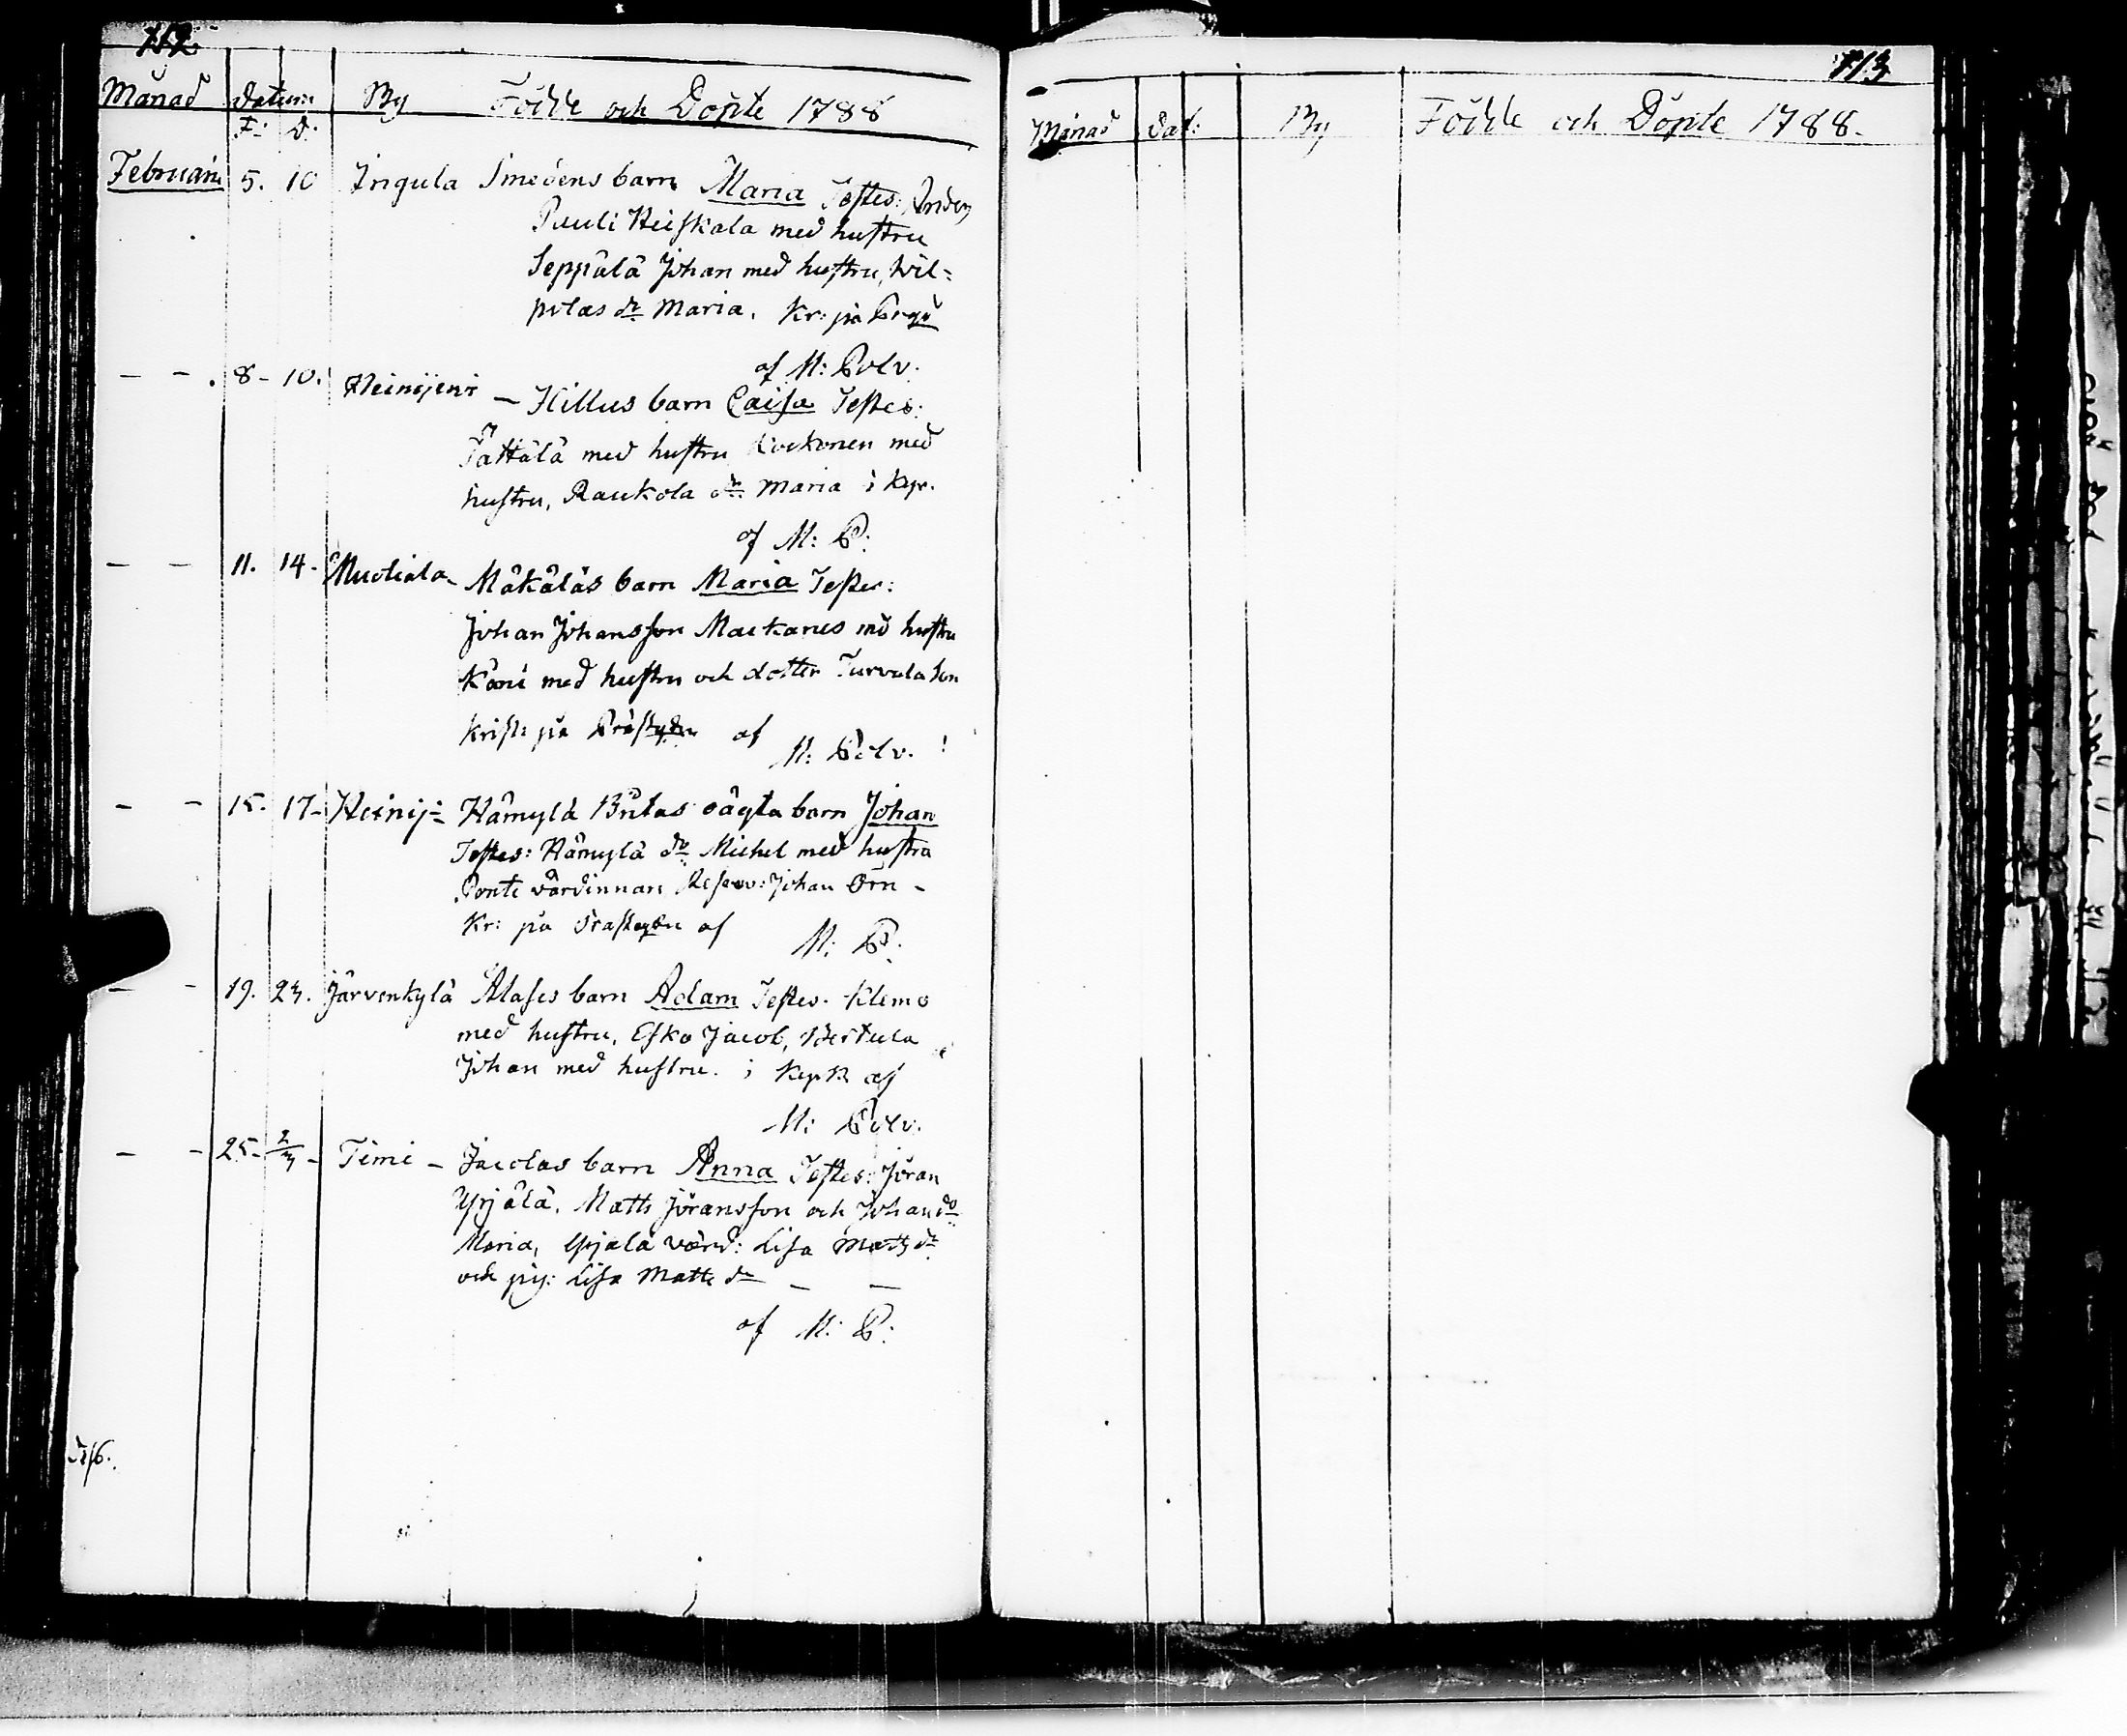 712
Månad Datum By Födde och Döpte 1788
F: D.
Februarii 5. 10 Ingula Smedens barn Maria Testes:
Pauli Heiskala med hustru
Seppälä Johan med hustru, Wil=
polas dr Maria. Kr: på
af M: Polv.
— — 8 - 10. Heinijoni — Hillus barn Caisa Testes:
Tattälä med hustru Kockonen med
hustru, Raukola dr Maria i Kyr.
af M: P:
— — 11. 14 - Muotiala - Mäkäläs barn Maria Testes:
Johan Johansson Mackanes md hustru
Käni med hustru och dotter Turvala son
Krist: på af
M: Polv.
— — 15. 17 - Heinij= Hämylä Britas oägta barn Johan
Testes: Hämylä do Michel med hustru
Ponte värdinnan Johan Örn -
Kr: på af M: P:
— — 19. 23. Järvenkylä Alases barn Adam Testes. Klemo
med hustru, Esko Jacob, Bertula
Johan med hustru. i Kyrk af
M: Polv.
— — 25 - 2/3 - Timi - Jacolas barn Anna Testes: Jöran
Yrjälä, Matts Jöransson och Johan do
Maria, Yrjälä värd: Lisa Matts dr
och pig: Lisa Matts dr — —
af M: P:
713
Månad Dat: By Födde och Döpte 1788.